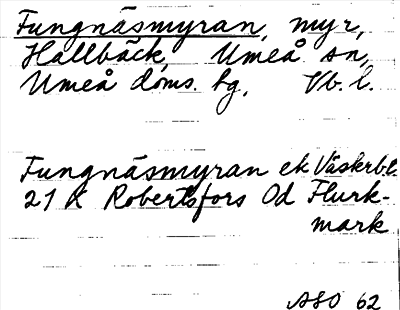 Fungnäsmyran, myr,
Hallbäck, Umeå sn,
Umeå doms. hg, Vb. l.
Fungnäsmyran ek Väskerb l.
21 K Robertsfors Od Flurk-
mark
ASO 62